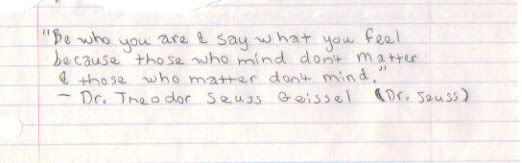 "Be who you are & say what you feel
because those who mind don't matter
& those who matter don't mind."
- Dr. Theodor Seuss Geissel (Dr. Seuss)